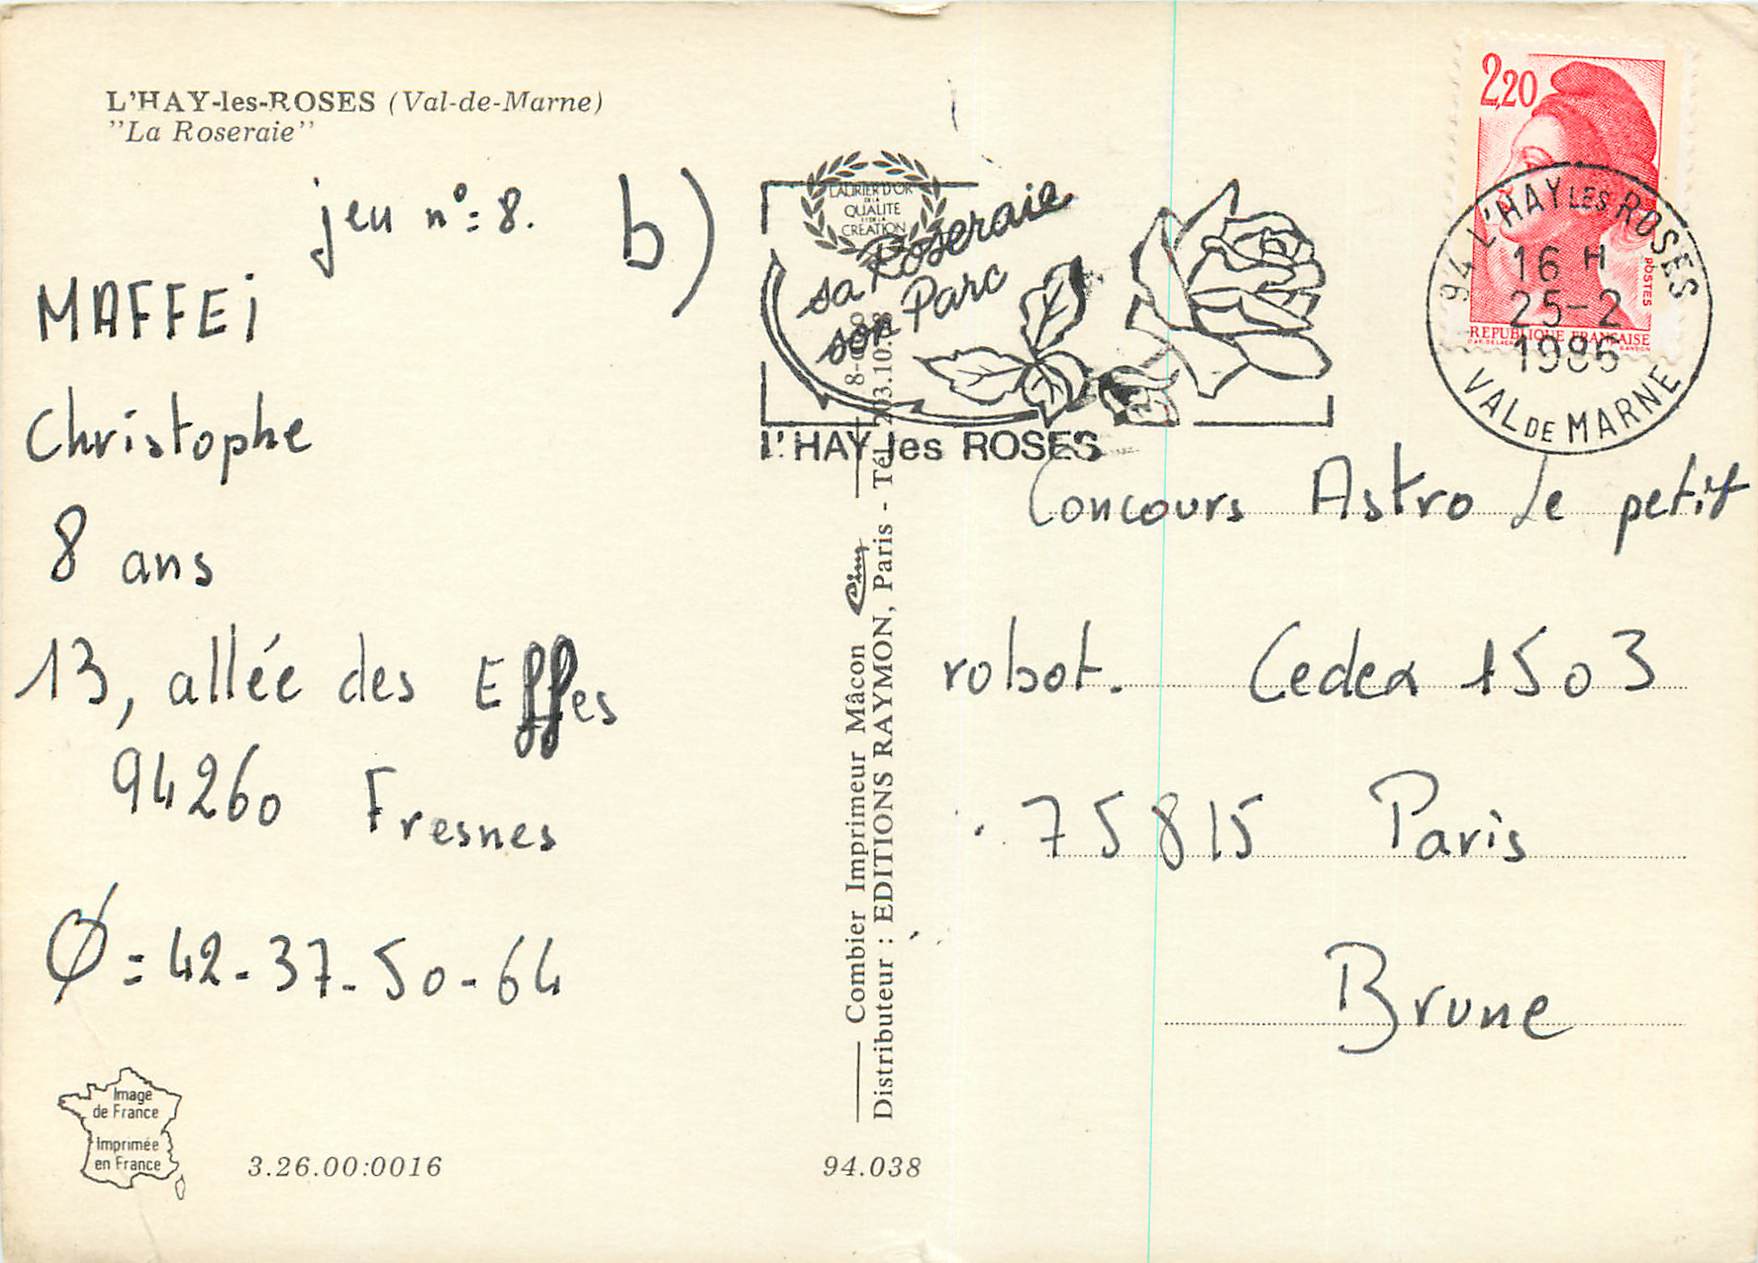 L'HAY-les-ROSES (Val-de-Marne)
"La Roseraie"
jeu n°: 8. b)
MAFFEi
Christophe
8 ans
13, allée des Effes
94260 Fresnes
Ø = 42-37-50-64
Image
de France
Imprimée
en France
3.26.00:0016
94.038
Combier Imprimeur Mâcon Cim
Distributeur : EDITIONS RAYMON, Paris - Tél. 203.10.
LAURIER D'OR
DE LA
QUALITE
ET DE LA
CREATION
sa Roseraie
son Parc
L'HAY les ROSES
2,20
POSTES
REPUBLIQUE FRANÇAISE
94 L'HAY LES ROSES
16 H
25-2
1986
VAL DE MARNE
Concours Astro le petit
robot. Cedex 1503
75815 Paris
Brune